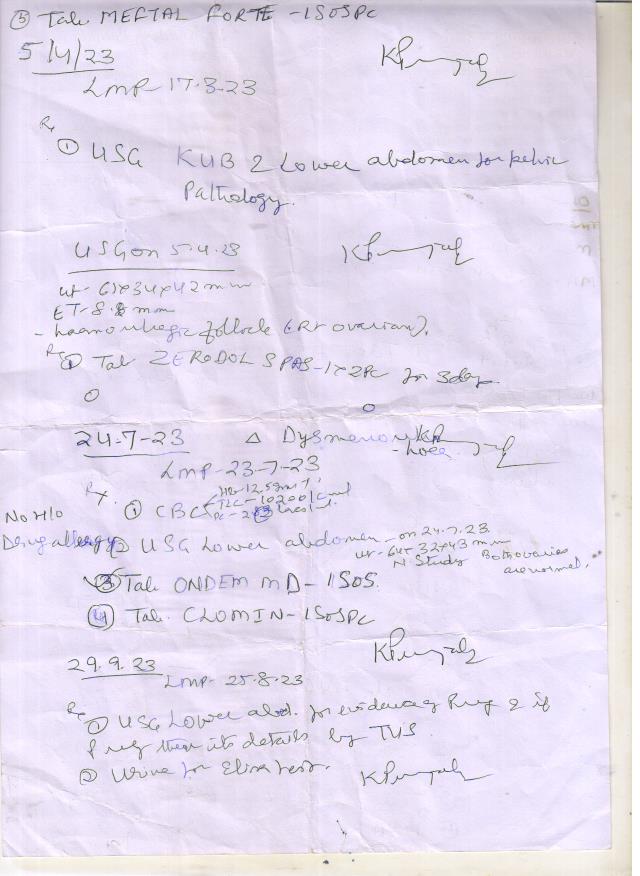 ⑤ Tab MEFTAL FORTE - 1SOSPC
5/4/23
LMP - 17.3.23
Rx
① USG KUB & Lower abdomen for pelvic
Pathology.
USG on 5.4.23
ut - 61×34×42 mm
ET - 8.8 mm
- haemorrhagic follicle (Rt ovarian).
Rx
① Tab ZERODOL SPAS - 1×2PC for 3days
24-7-23 Δ Dysmenorrhoea
LMP - 23-7-23
Rx
① CBC
Hb - 12.5gm%
TLC - 10200/cmm
PC -
No H/o
Drug allergy
② USG Lower abdomen - on 24.7.23
ut - 64×32×43 mm
N. Study Both ovaries
are normal.
③ Tab ONDEM MD - 1SOS
④ Tab. CLOMIN - 1SOSPC
29.9.23
LMP - 25.8.23
Rx
① USG Lower abd. for evidence of Preg & if
Preg then its details by TVS
② Urine for Elisa test.